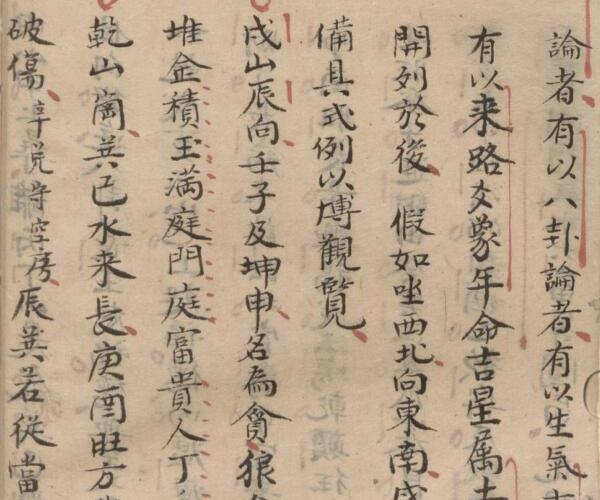 論者有以八卦論者有以生氣
有以来路爻象年命吉星属
開列於後假如坐西北向東南
備具式例以博觀覽
戌山辰向壬子及坤申名為貪狼
堆金積玉滿庭門庭富貴人丁
乾山巽巳水来長庚酉旺方
破傷房辰巽若從當